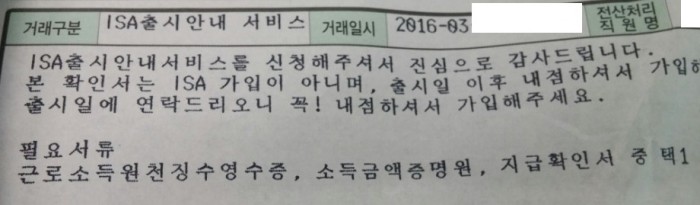 거래구분 ISA출시안내 서비스 거래일시 2016-03 전산처리
직원명
ISA출시안내서비스를 신청해주셔서 진심으로 감사드립니다.
본 확인서는 ISA 가입이 아니며, 출시일 이후 내점하셔서
출시일에 연락드리오니 꼭! 내점하셔서 가입해주세요.
필요서류
근로소득원천징수영수증, 소득금액증명원, 지급확인서 중 택1